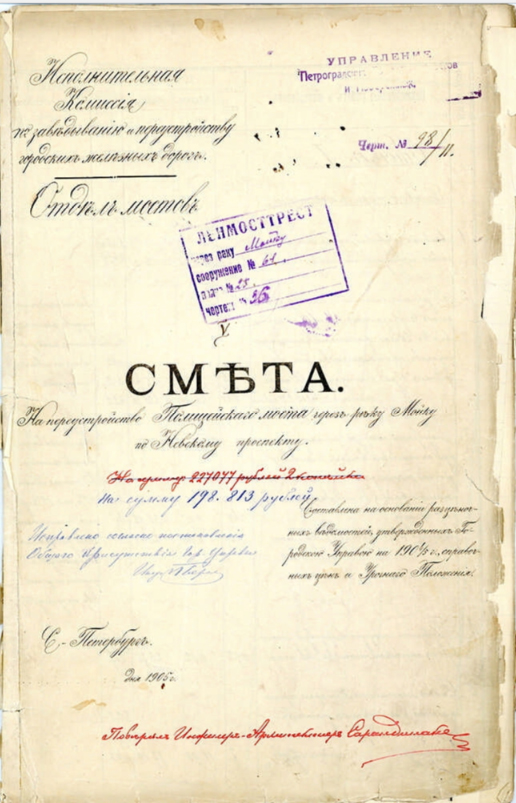 УПРАВЛЕНИЕ
Исполнительная
Комиссія
по завѣдыванію и переустройству
городскихъ желѣзныхъ дорогъ.
Черт. № 98/11.
Отдѣлъ мостовъ
ЛЕНМОСТТРЕСТ
через реку Мойку
сооружение № 61.
№ 25.
чертеж № 36
СМѢТА.
На переустройство Полицейскаго моста черезъ рѣку Мойку
по Невскому проспекту.
На сумму: 227077 рублей 2 копѣйки
На сумму 198.813 рублей
Составлена на основаніи расцѣноч-
ныхъ вѣдомостей, утвержденныхъ Го-
родскою Управою на 190 г., справоч-
ныхъ цѣнъ и Урочнаго Положенія.
Исправлено согласно постановленія
Общаго Присутствія Гор. Управы
С.-Петербургъ.
Дня 1905 г.
Повѣрялъ Инженеръ-Архитекторъ Сарандинаки